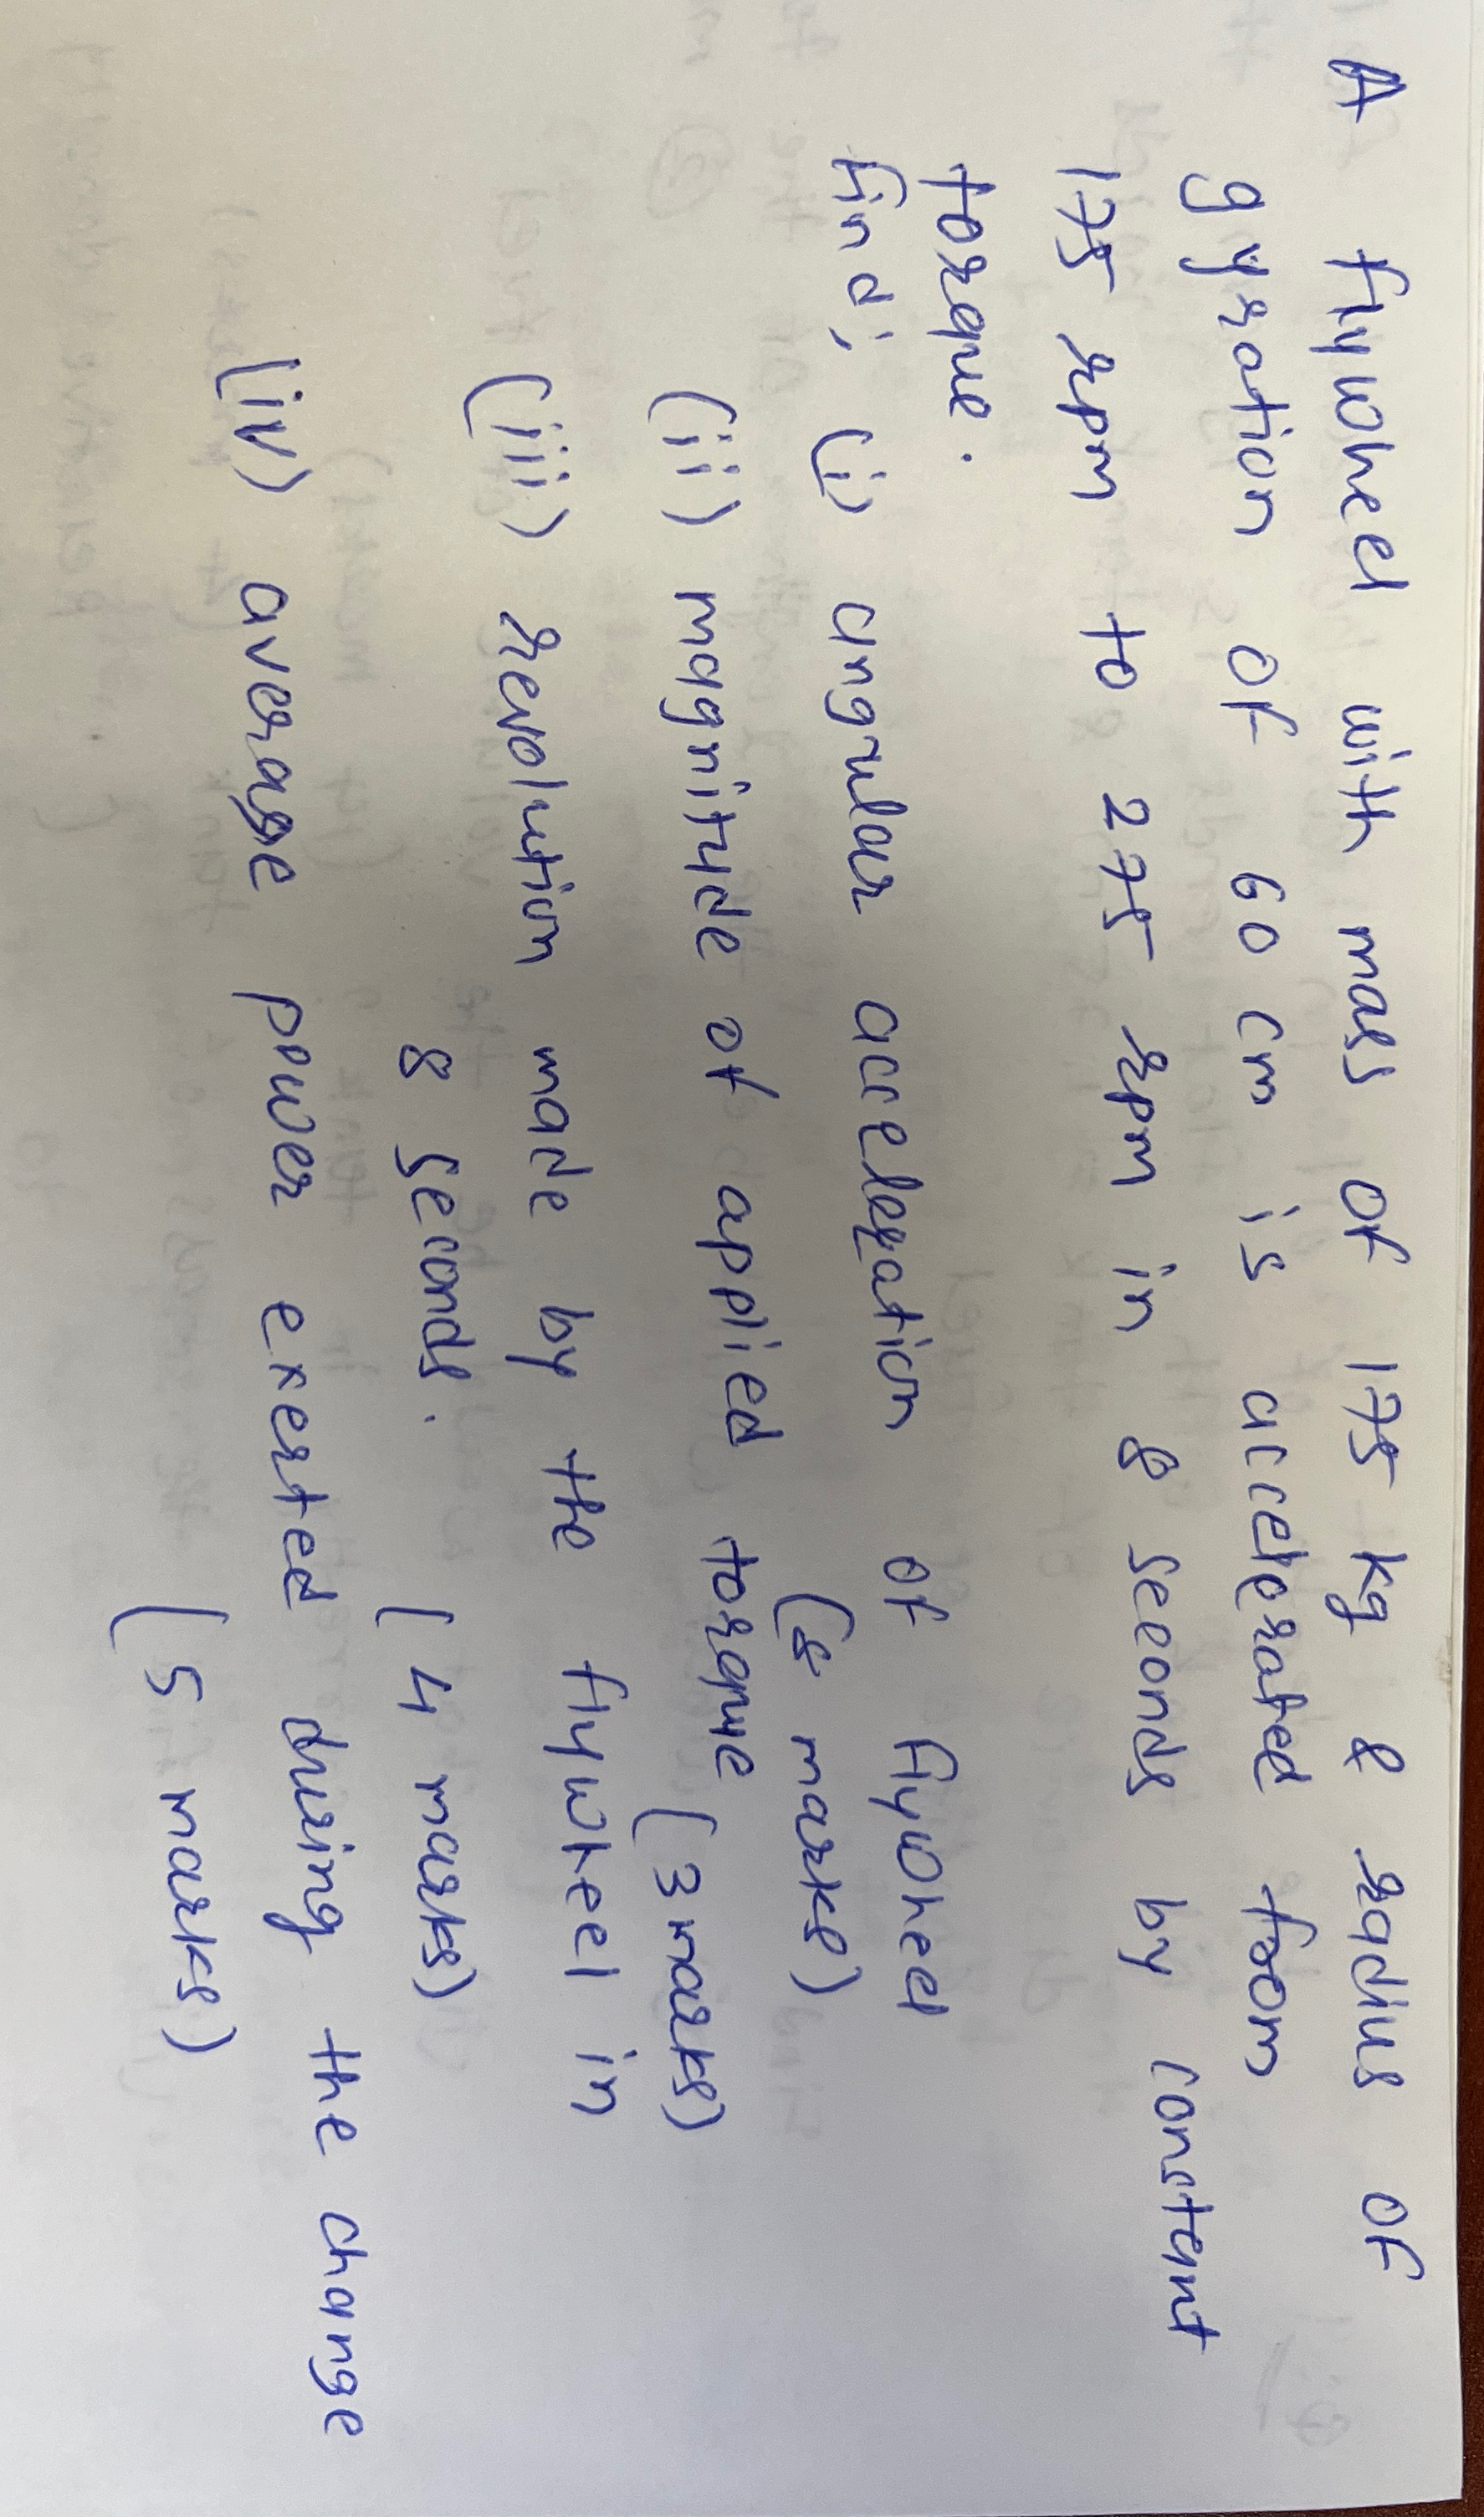 A flywheel with mass of 175 kg & radius of
gyration of 60 cm is accelerated from
175 rpm to 275 rpm in 8 seconds by constant
torque.
find; (i) angular acceleration of flywheel
( marks)
(ii) magnitude of applied torque (3 marks)
(iii) revolution made by the flywheel in
8 seconds. (4 marks)
(iv) average power exerted during the change
(5 marks)